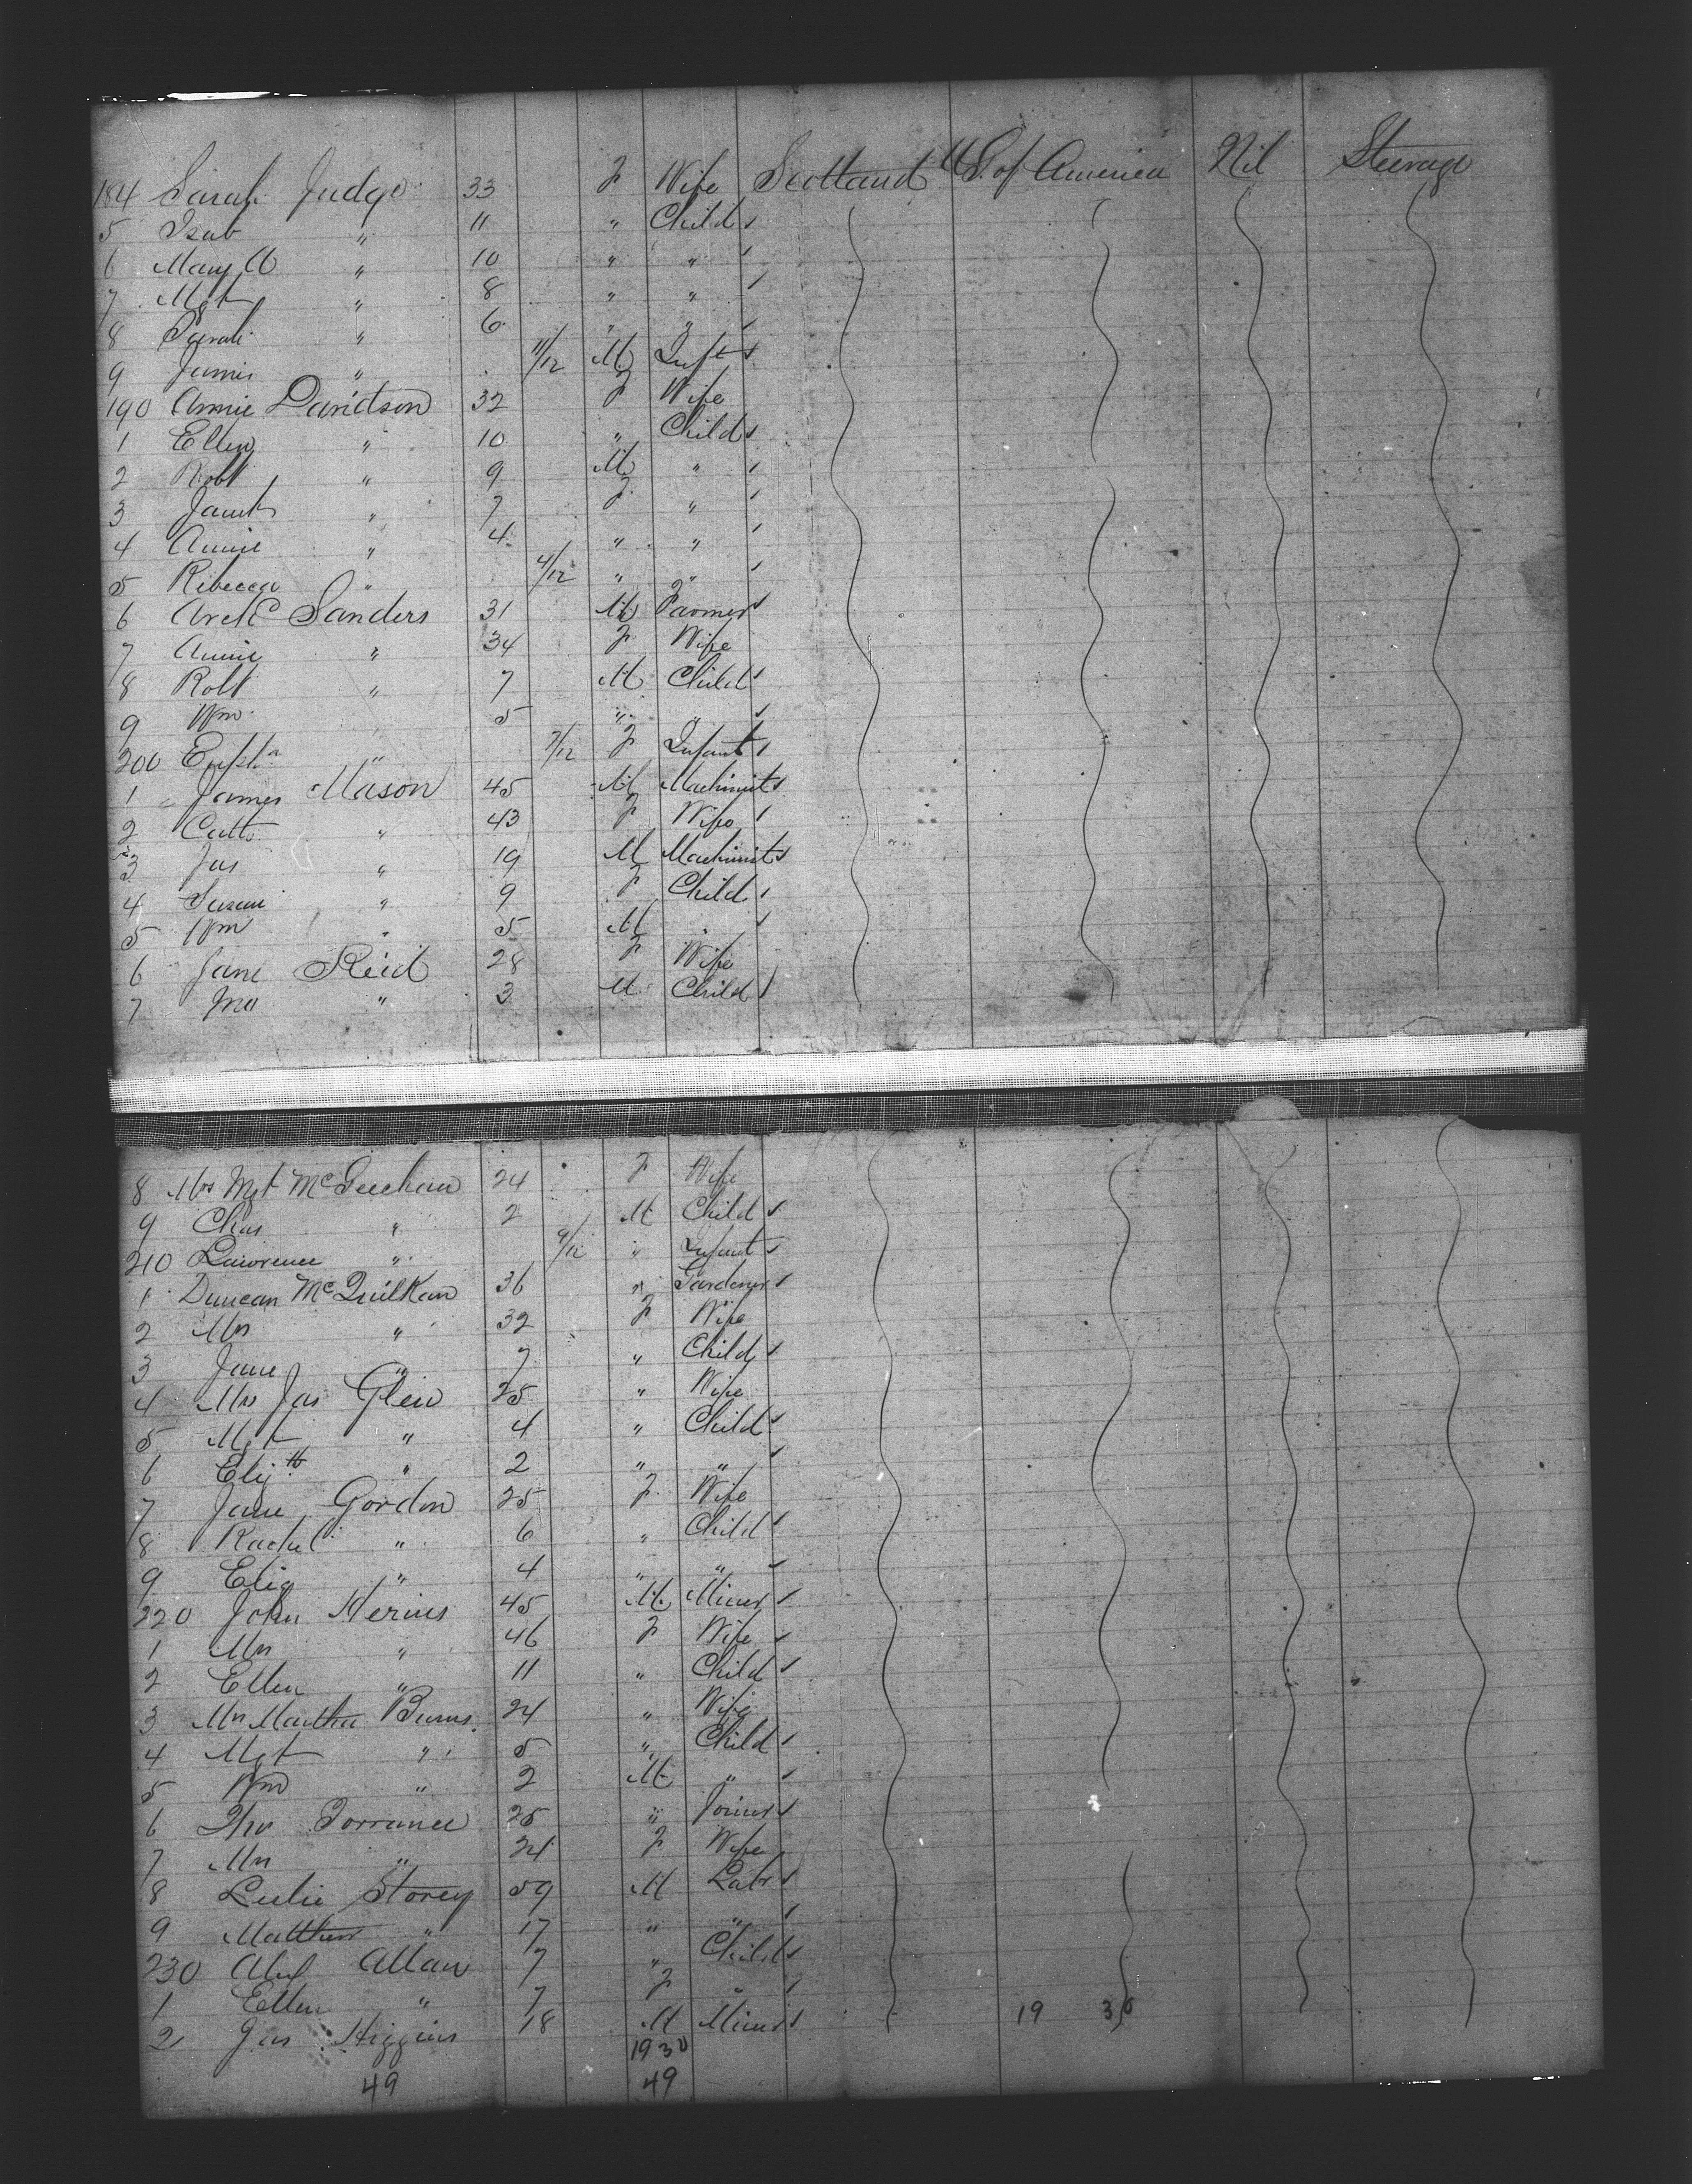 184 Sarah Judge 33 F Wife Scotland U.S. of America Nil Steerage
5 Isab " 11 " Child
6 Mary A " 10 " "
7 Mgt " 8 " "
8 Sarah " 6 " "
9 James " 11/12 M Inft
190 Annie Davidson 32 F Wife
1 Ellen " 10 " Child
2 Robt " 9 M "
3 Janet " 7 F "
4 Annie " 4 " "
5 Rebecca " 4/12 " "
6 Archd Sanders 31 M Farmer
7 Annie " 34 F Wife
8 Robt " 7 M Child
9 Wm 5 " "
200 Eupha " 7/12 F Infant
1 James Mason 45 M Machinist
2 Cath " 43 F Wife
3 Jas " 19 M Machinist
4 Susan " 9 F Child
5 Wm " 5 M "
6 Jane Reid 28 F Wife
7 Jno " 3 M Child
8 Mrs Mgt McGeechan 24 F Wife
9 Chas " 2 M Child
210 Lawrence " 9/12 " Infant
1 Duncan McQuilkan 36 " Gardener
2 Mrs " 32 F Wife
3 Jane " 7 " Child
4 Mrs Jas Glen 25 " Wife
5 Mgt " 4 " Child
6 Elizth " 2 " "
7 Jane Gordon 25 F Wife
8 Rachel " 6 " Child
9 Eliz " 4 " "
220 John 45 M Miner
1 Mrs " 46 F Wife
2 Ellen " 11 " Child
3 Mrs Martha Burns 24 " Wife
4 Mgt " 5 " Child
5 Wm " 2 M "
6 Tho Torrance 25 " Joiner
7 Mrs " 24 F Wife
8 Leslie Storey 59 M Labr
9 Matthew " 17 " "
230 Alex Allan 7 " Child
1 Ellen " 7 F "
2 Jas Higgins 18 M Miner 19 30
1930
49 49